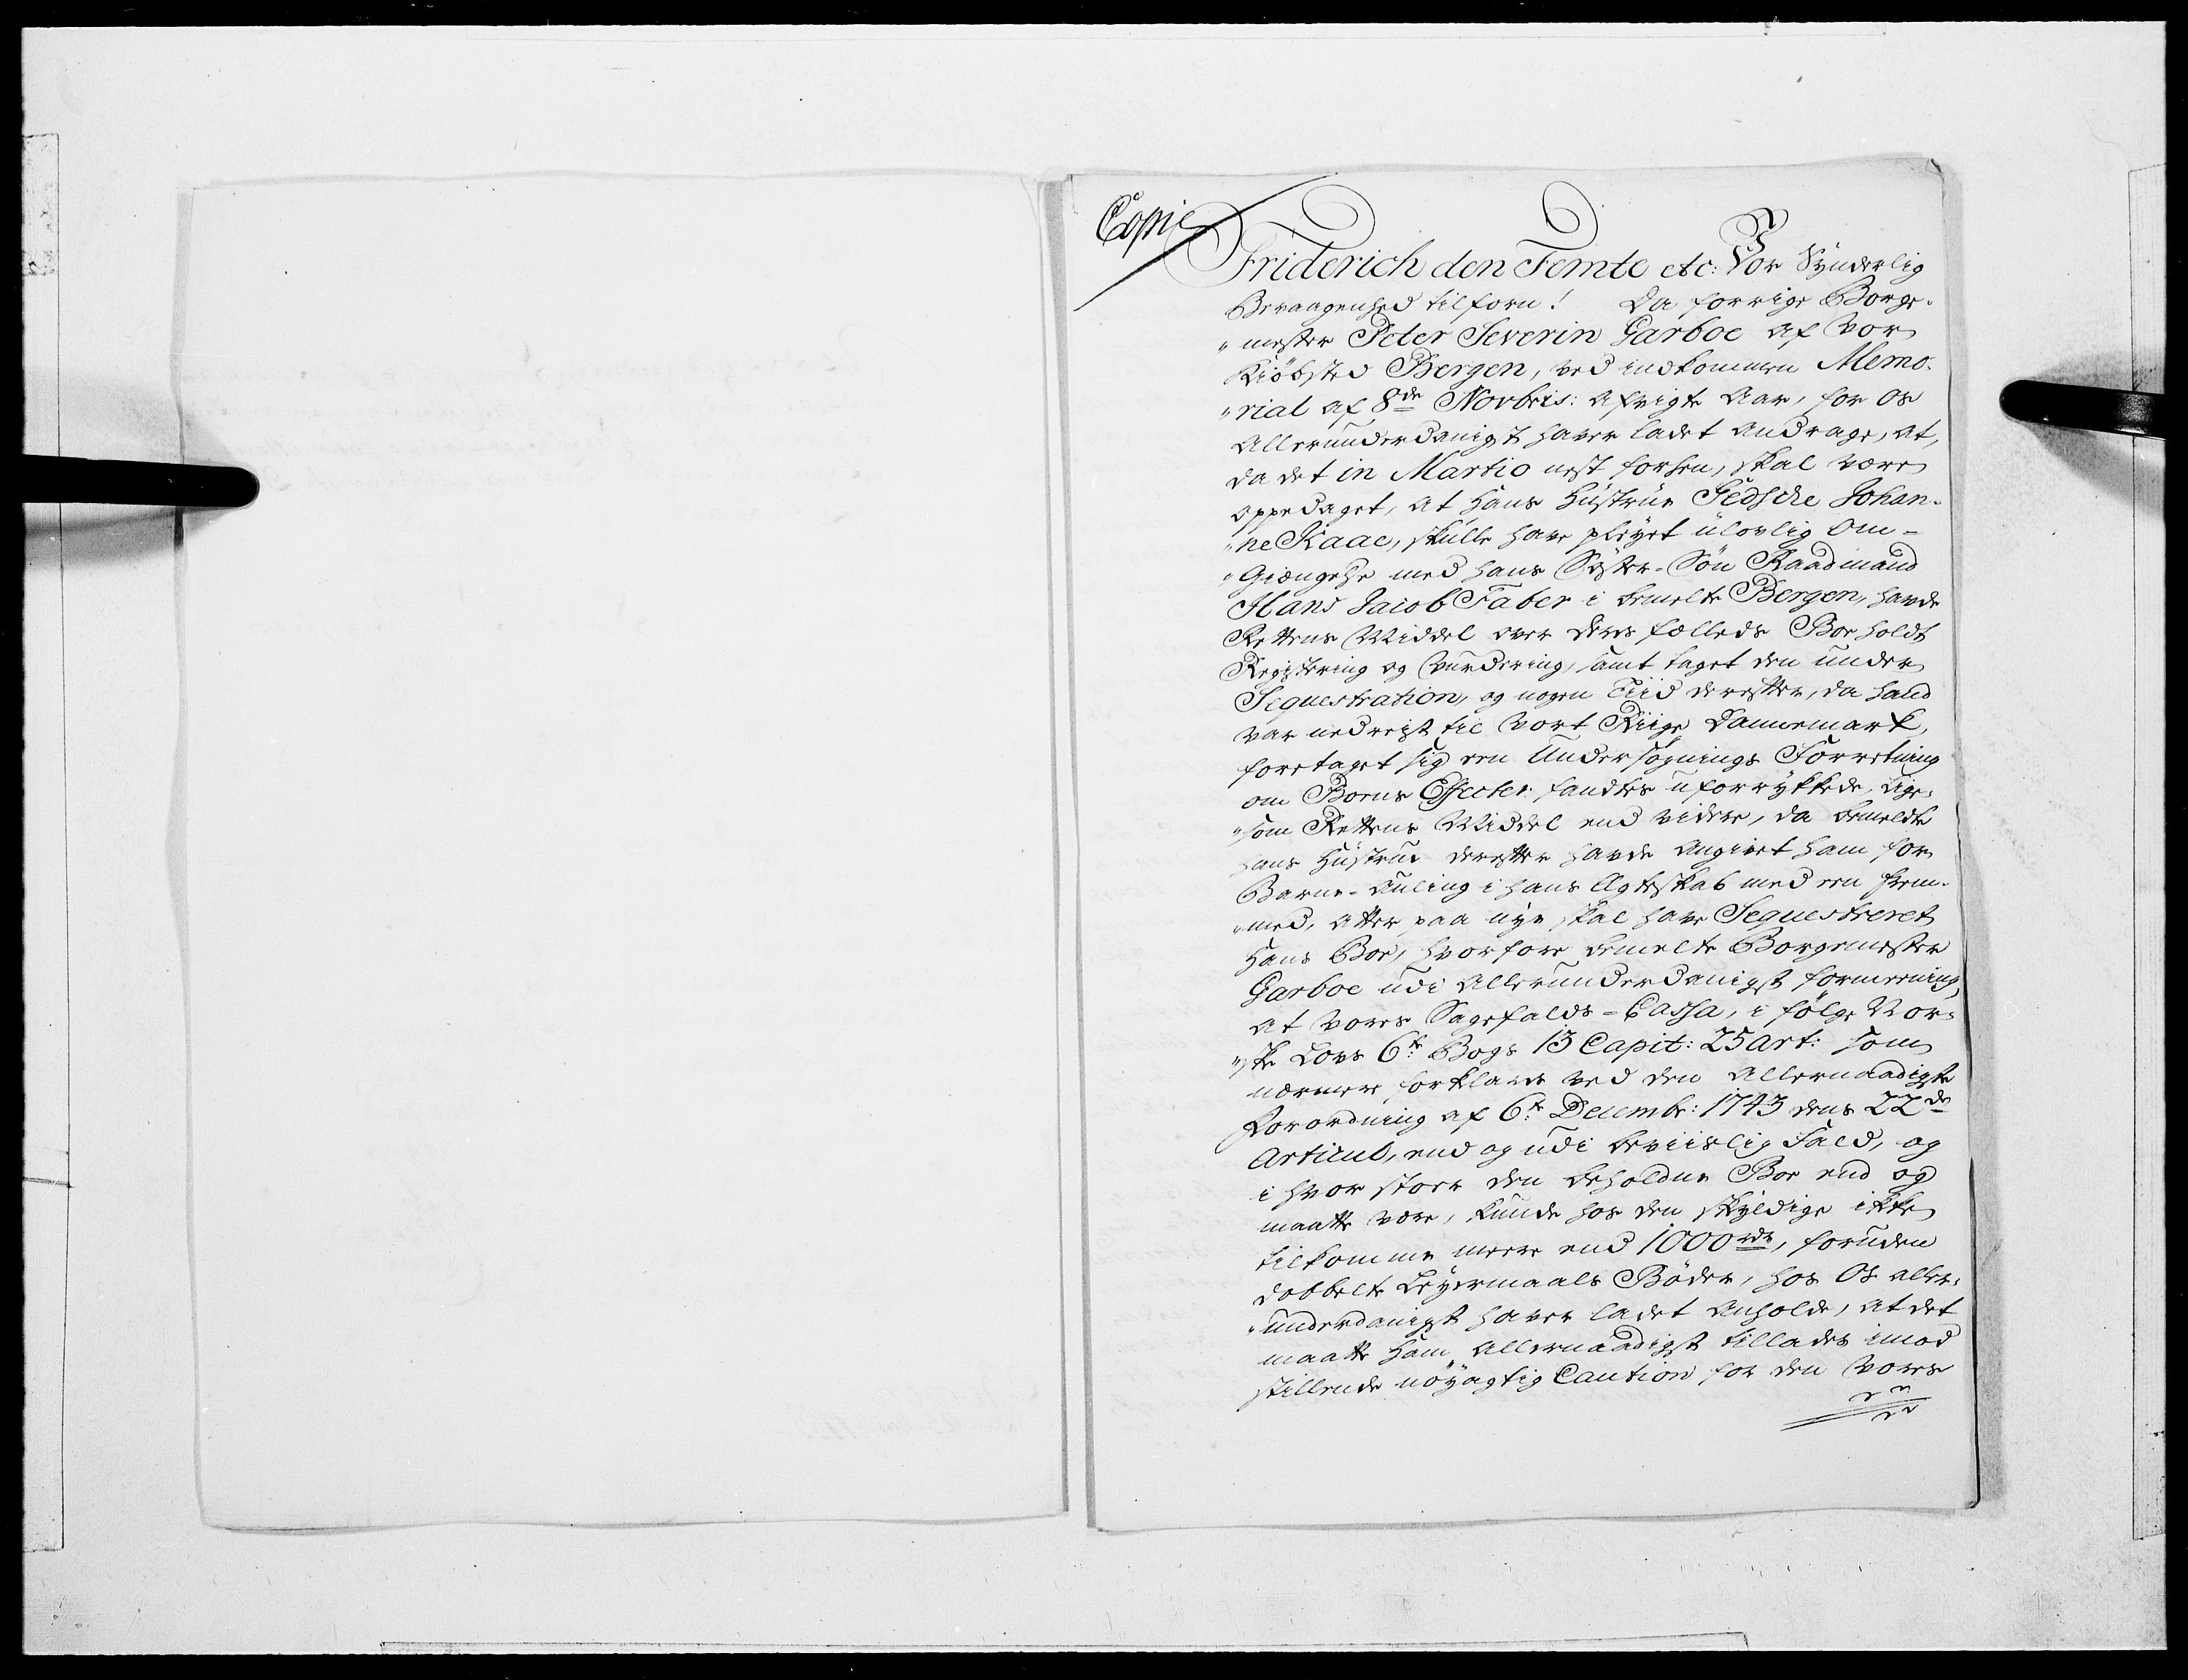 Copie
Friderich den Femte etc: Vor Synderlig
Bevaagenhed tilforn! Da forrige Borge-
"mester Peter Severin Garboe af Vor
Kiöbsted Bergen, ved indkommen Memo-
"rial af 8de Novbris: afvigte Aar, for Os
Allerunderdanigst haver ladet andrage, at,
da det in Martio nest forhen, skal være
oppedaget, at Hans Hustrue Gedsche Johan-
"ne Kaae, skulle have pleyet ulovlig Om-
"Giængelse med hans Söster-Sön Raadmand
Hans Jacob Faber i bemelte Bergen, havde
Rettens Middel over deres fælleds Boe holdt
Registering og Vurdering, samt taget den under
Sequestration, og nogen Tiid derefter, da hand
var nedreyst til Vort Riige Dannemark,
foretaget sig een Undersögnings Forretning
om Boens Effecter fandtes uforrykkede, lige-
"som Rettens Middel end videre, da bemeldte
hans Hustrue derefter havde angivet ham for
Barne-Auling i hans Egteskab med een frem-
"med, atter paa nye skal have Sequestreret
Hans Boe, hvorfore bemelte Borgemester
Garboe udi Allerunderdanigst formeening,
at vores Sagefalds-Cassa, i fölge Nor-
"ske Lovs 6te Bogs 13 Capit: 25 Art: som
nærmere forklares ved den Allernaadigste
Forordning af 6te Decembr: 1743 dens 22de
Articul, end og udi beviislig Fald, og
i hvor stoer den beholdne Boe end og
maatte være, kunde hos den skyldige ikke
tilkomme meere end 1000 rdr, foruden
dobbelte Leyermaals Böder, hos Os aller-
"underdanigst haver ladet anholde, at det
maatte Ham Allernaadigst tillades imod
stillende nöyagtig Caution for den Vores